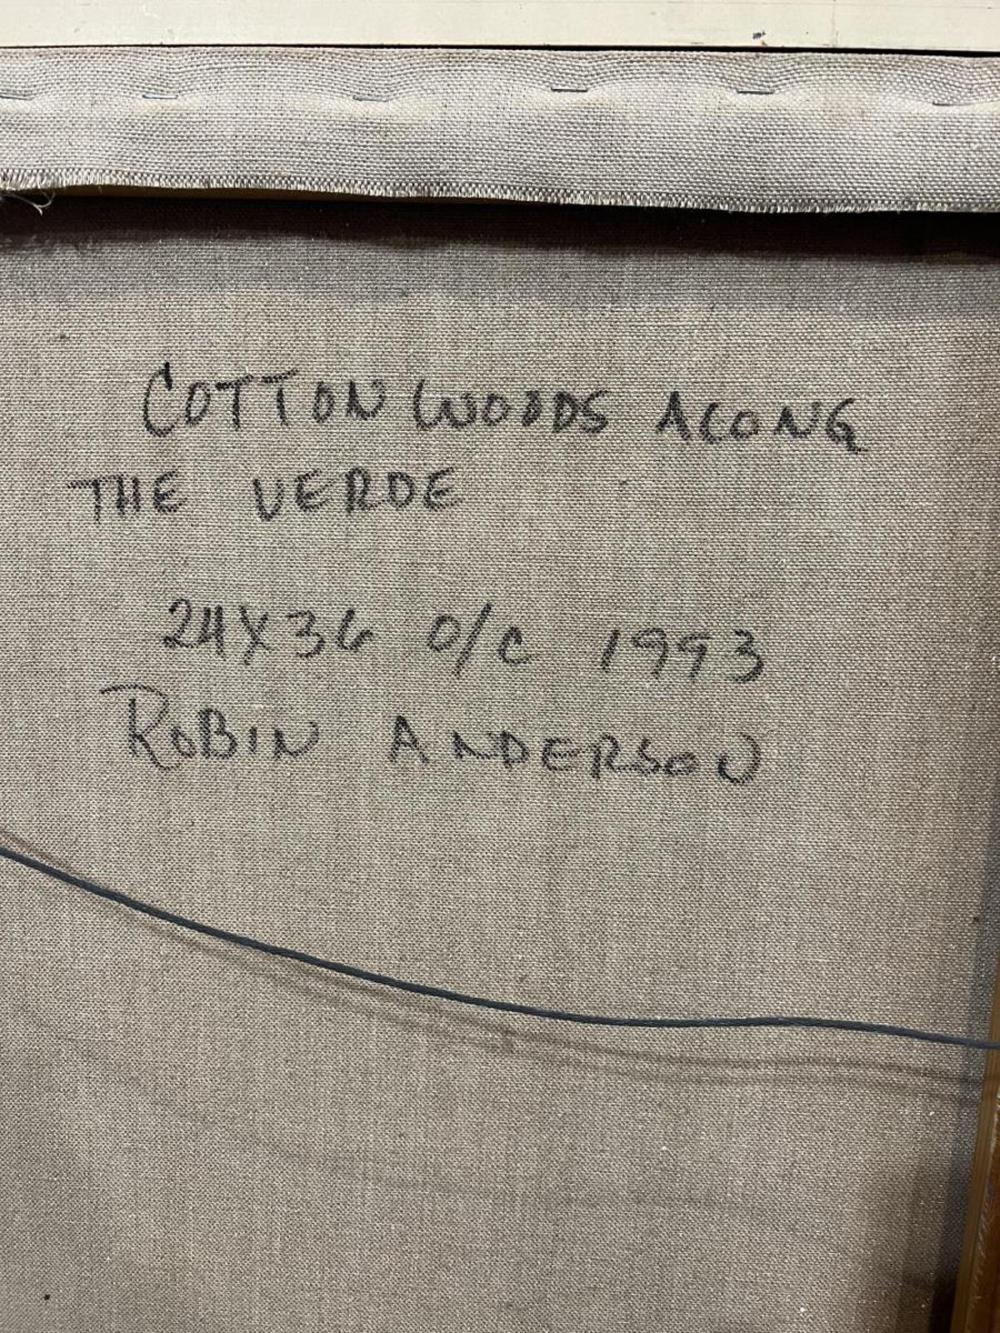 COTTONWOODS ALONG
THE VERDE
24X36 O/C 1993
ROBIN ANDERSON